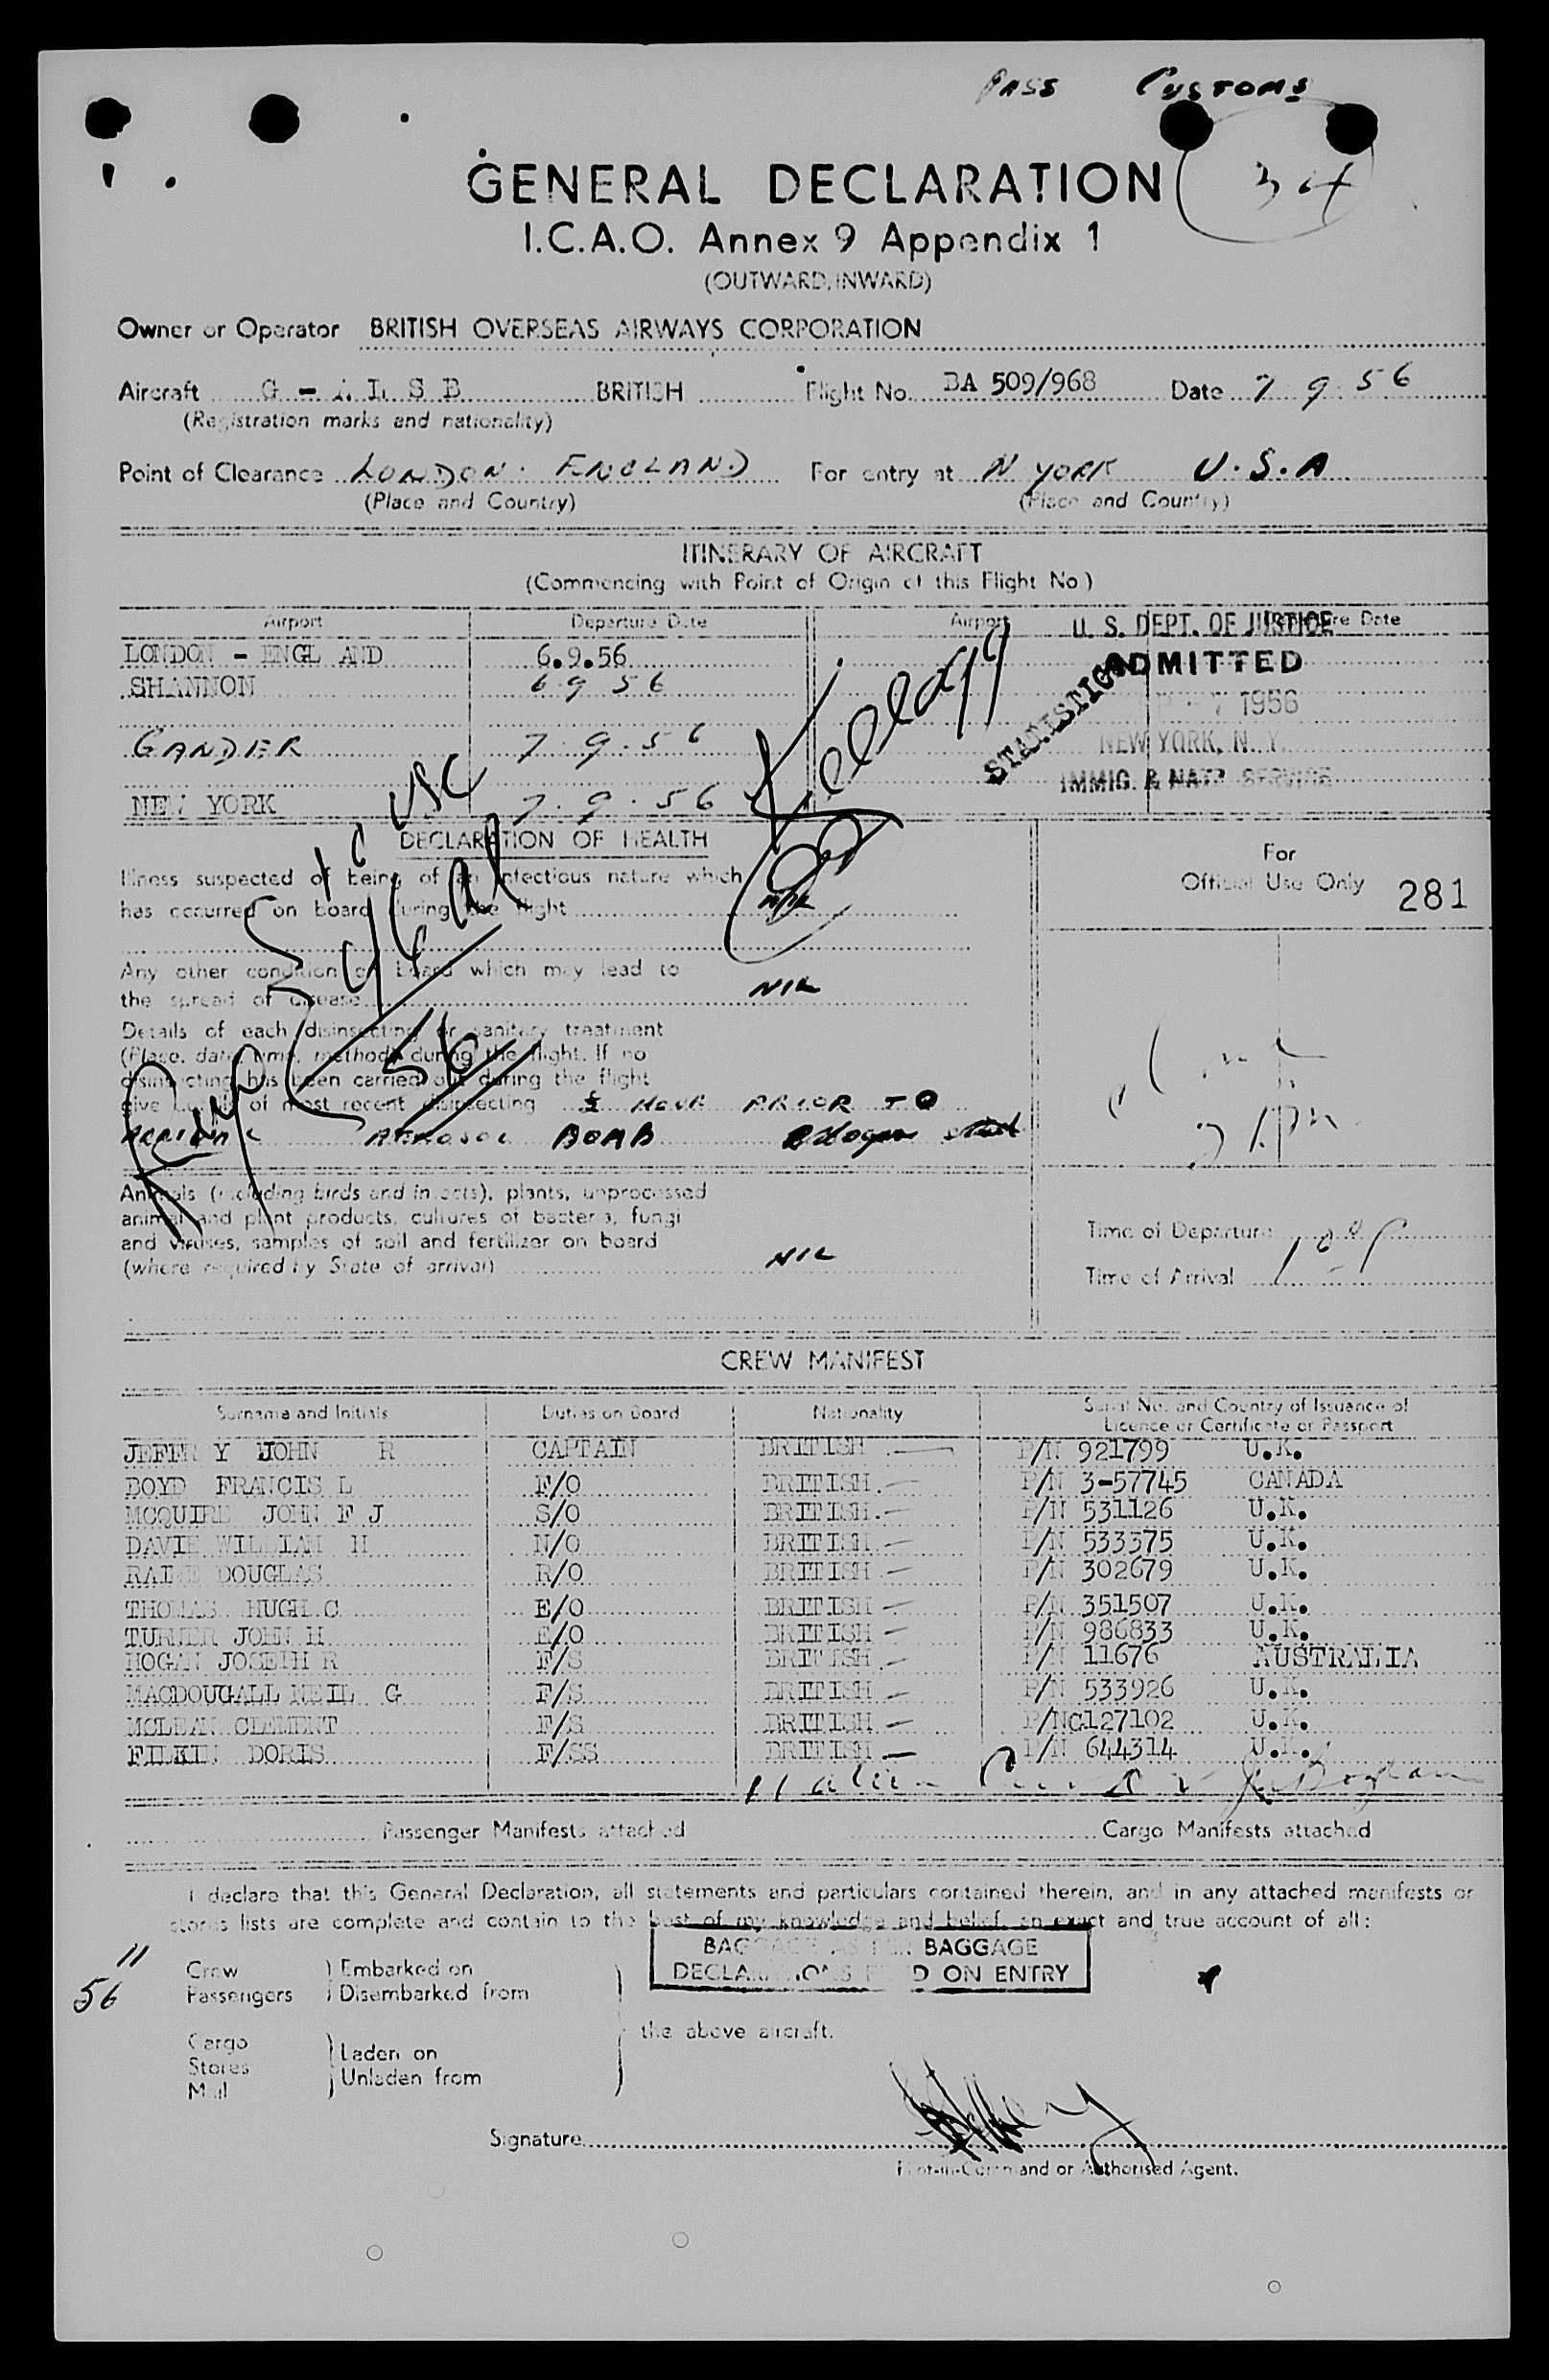 PASS CUSTOMS
34
GENERAL DECLARATION
I.C.A.O. Annex 9 Appendix 1
(OUTWARD/INWARD)
Owner or Operator BRITISH OVERSEAS AIRWAYS CORPORATION
Aircraft G - A L S B BRITISH Flight No. BA 509/968 Date 7 9 56
(Registration marks and nationality)
Point of Clearance LONDON. ENGLAND For entry at N YORK U.S.A
(Place and Country) (Place and Country)
ITINERARY OF AIRCRAFT
(Commencing with Point of Origin of this Flight No)
Airport Departure Date Airport Departure Date
U. S. DEPT. OF JUSTICE
LONDON - ENGL AND 6.9.56
ADMITTED
SHANNON 6 9 56
STATISTICAL
7 1956
GANDER 7.9.56
NEW YORK, N. Y.
IMMIG. & NATZ. SERVICE
NEW YORK 7.9.56
Kellogg
DECLARATION OF HEALTH
For
Official Use Only 281
Illness suspected of being of an infectious nature which
has occurred on board during the flight NIL
Any other condition on board which may lead to
the spread of disease NIL
Details of each disinsecting or sanitary treatment
(Place, date, time, method) during the flight. If no
disinsecting has been carried out during the flight
give details of most recent disinsecting ½ HOUR PRIOR TO
ARRIVAL AEROSOL BOMB
Animals (including birds and insects), plants, unprocessed
animal and plant products, cultures of bacteria, fungi
and viruses, samples of soil and fertilizer on board
(where required by State of arrival) NIL
Time of Departure
Time of Arrival
CREW MANIFEST
Surname and Initials Duties on Board Nationality Serial No. and Country of Issuance of
Licence or Certificate or Passport
JEFFR Y JOHN R CAPTAIN BRITISH P/N 921799 U.K.
BOYD FRANCIS L F/O BRITISH P/N 3-57745 CANADA
MCQUIRE JOHN F J S/O BRITISH P/N 531126 U.K.
DAVIE WILLIAM H N/O BRITISH P/N 533375 U.K.
RAINE DOUGLAS R/O BRITISH P/N 302679 U.K.
THOMAS HUGH C E/O BRITISH P/N 351507 U.K.
TURNER JOHN H E/O BRITISH P/N 986833 U.K.
HOGAN JOSEPH R F/S BRITISH P/N 11676 AUSTRALIA
MACDOUGALL NEIL G F/S BRITISH P/N 533926 U.K.
MCLEAN CLEMENT F/S BRITISH P/NC127102 U.K.
FILKIN DORIS F/SS BRITISH P/N 644314 U.K.
11 alien
Passenger Manifests attached Cargo Manifests attached
I declare that this General Declaration, all statements and particulars contained therein, and in any attached manifests or
stores lists are complete and contain to the best of my knowledge and belief, an exact and true account of all:
BAGGAGE AS PER BAGGAGE
DECLARATIONS FILED ON ENTRY
11 Crew Embarked on
56 Passengers Disembarked from
the above aircraft.
Cargo
Stores Laden on
Mail Unladen from
Signature
Pilot-in-Command or Authorised Agent.